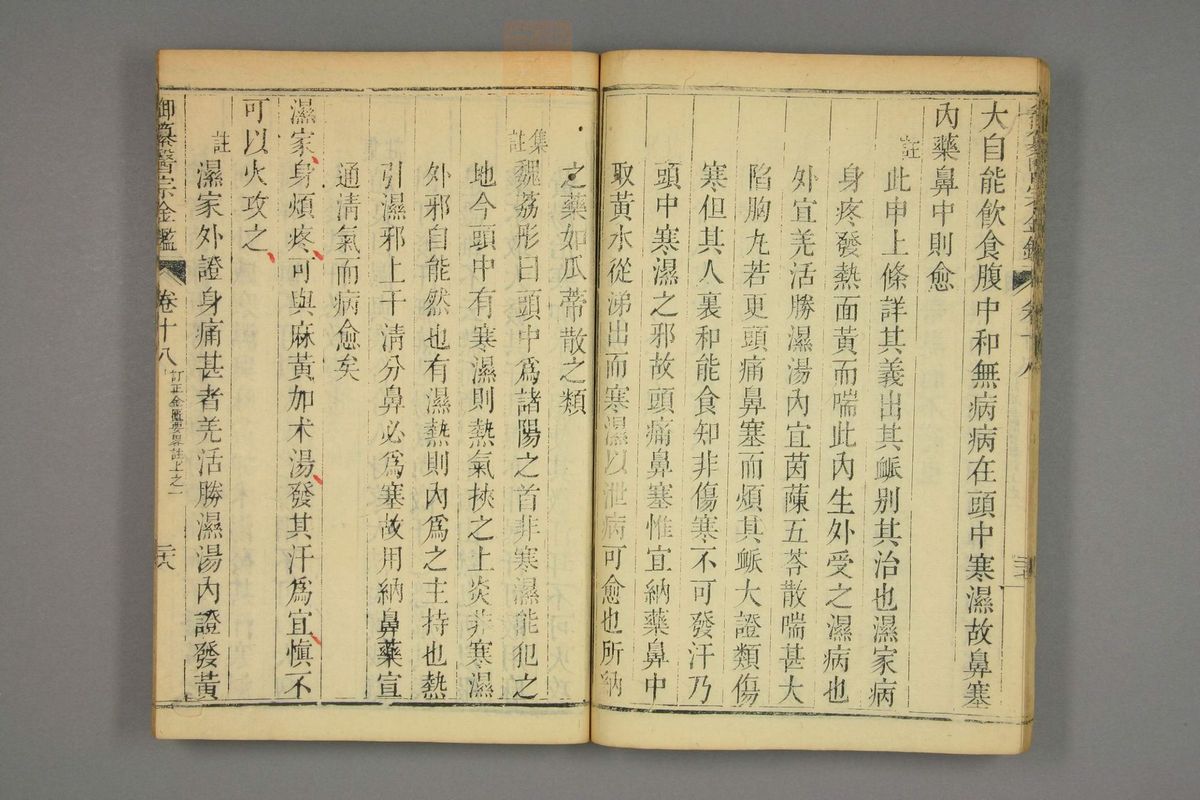 大自能飲食腹中和無病病在頭中寒濕故鼻塞
內藥鼻中則愈
註
此申上條詳其義出其䘑别其治也濕家病
身疼發熱面黃而喘此內生外受之濕病也
外宜羌活勝濕湯內宜茵蔯五苓散喘甚大
陷胸九若更頭痛鼻塞而煩其䘑大證類傷
寒但其人裏和能食知非傷寒不可發汗乃
頭中寒濕之邪故頭痛鼻塞惟宜納藥鼻中
取黃水從涕出而寒濕以泄病可愈也所納
之藥如瓜蒂散之類
集註
魏荔彤曰頭中爲諸陽之首非寒濕能犯之
地今頭中有寒濕則熱氣挾之上炎非寒濕
外邪自能然也有濕熱則內爲之主持也熱
引濕邪上干淸分鼻必爲塞故用納鼻藥宣
通淸氣而病愈矣
濕家身煩疼可與麻黃加朮湯發其汗爲宜愼不
可以火攻之
註
濕家外證身痛甚者羌活勝濕湯內證發黃
御纂醫宗金鑑 卷十八 訂正金匱要畧註上之一 二十八